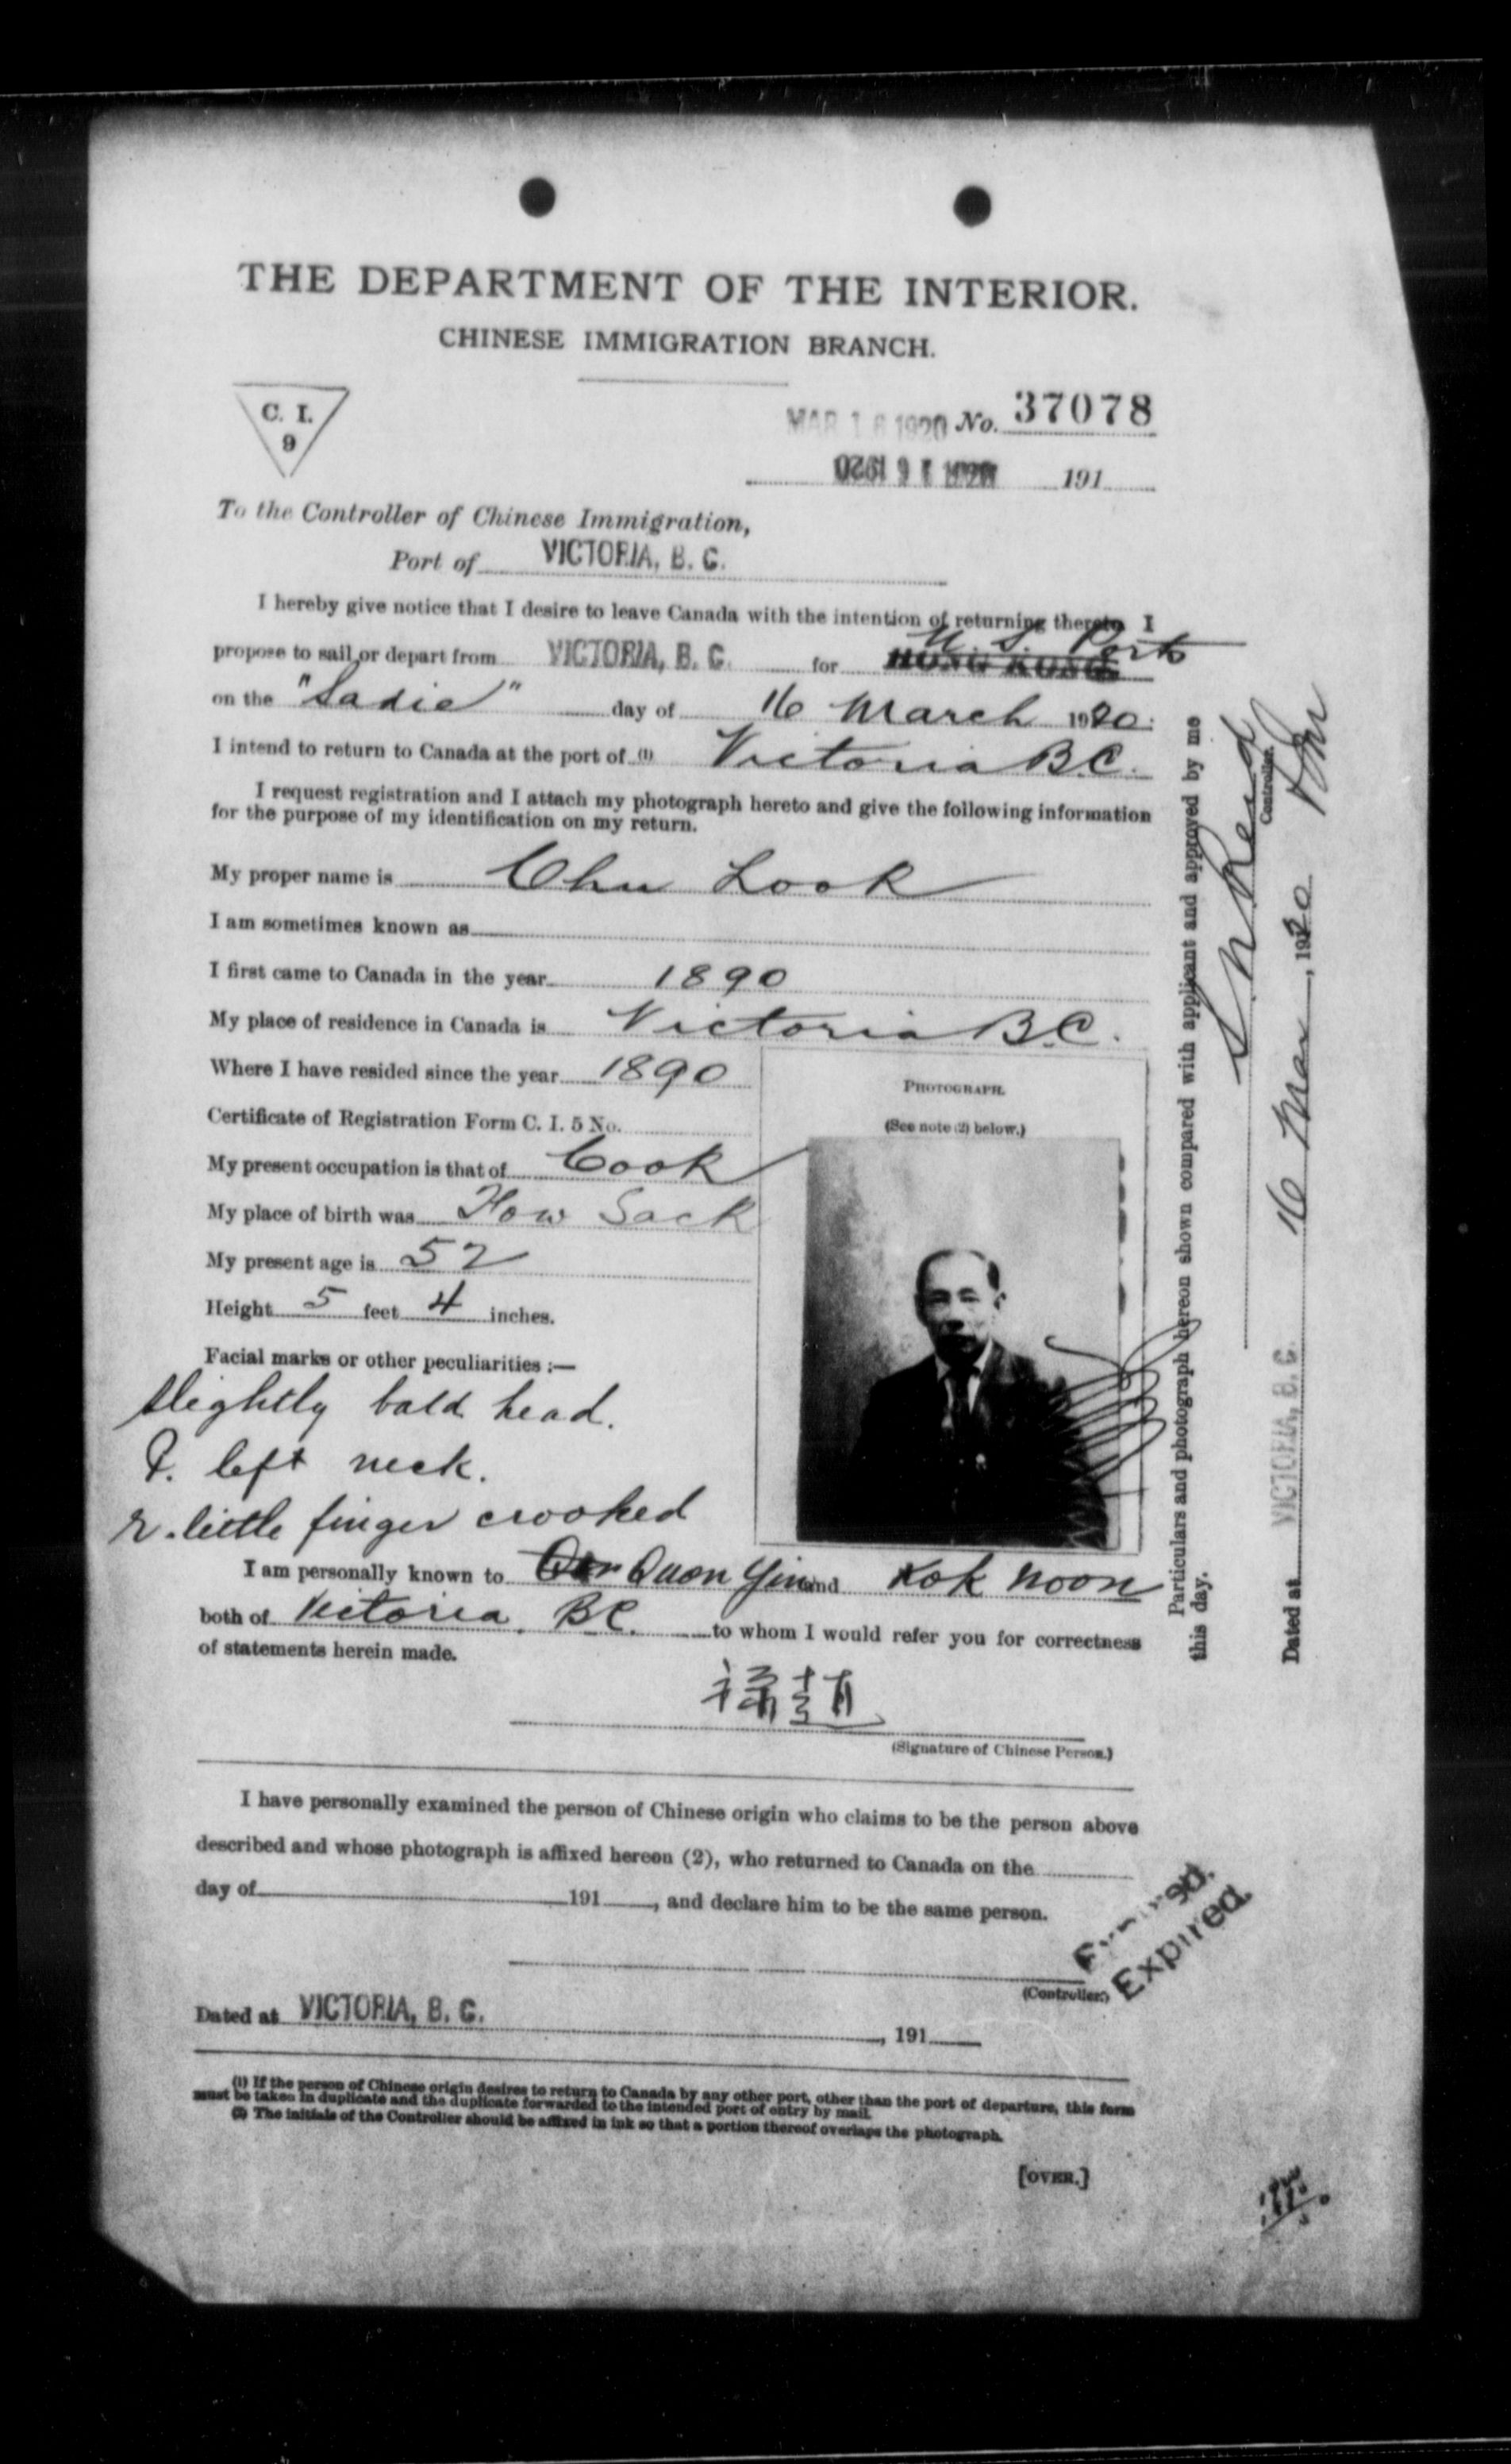 THE DEPARTMENT OF THE INTERIOR.
CHINESE IMMIGRATION BRANCH.
C. I.
9
MAR 16 1920 No. 37078
191
To the Controller of Chinese Immigration,
Port of VICTORIA, B. C.
I hereby give notice that I desire to leave Canada with the intention of returning thereto. I
propose to sail or depart from VICTORIA, B. C. for HONG KONG U. S. Ports
on the "Sadie" day of 16 March 1920.
I intend to return to Canada at the port of (1) Victoria B.C.
I request registration and I attach my photograph hereto and give the following information
for the purpose of my identification on my return.
My proper name is Chu Look
I am sometimes known as
I first came to Canada in the year 1890
My place of residence in Canada is Victoria B.C.
Where I have resided since the year 1890
Certificate of Registration Form C. I. 5 No.
My present occupation is that of Cook
My place of birth was How Sack
My present age is 52
Height 5 feet 4 inches.
Facial marks or other peculiarities :—
Slightly bald head.
left neck.
r. little finger crooked
PHOTOGRAPH.
(See note (2) below.)
I am personally known to Quon Yin and Kok Noon
both of Victoria, B.C. to whom I would refer you for correctness
of statements herein made.
(Signature of Chinese Person.)
I have personally examined the person of Chinese origin who claims to be the person above
described and whose photograph is affixed hereon (2), who returned to Canada on the
day of 191 , and declare him to be the same person.
(Controller.)
Expired.
Expired.
Dated at VICTORIA, B. C. , 191
(1) If the person of Chinese origin desires to return to Canada by any other port, other than the port of departure, this form
must be taken in duplicate and the duplicate forwarded to the intended port of entry by mail.
(2) The initials of the Controller should be affixed in ink so that a portion thereof overlaps the photograph.
[OVER.]
Particulars and photograph hereon shown compared with applicant and approved by me
this day.
Controller.
Dated at VICTORIA, B. C. 16 Mar , 1920